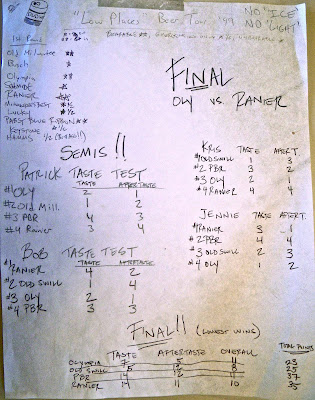 "Low Places Beer Tour '99
NO "ICE"
NO "LIGHT"
Old Milwaukee **
Busch *
Olympia **
Schmidt *
Ranier
Milwaukee's Best *½
Lucky *½
Pabst Blue Ribbon **
Keystone *½
Hamms ½
FINAL
OLY vs. RANIER
SEMIS!!
PATRICK TASTE TEST
TASTE AFTERTASTE
#1 OLY 2 1
#2 Old Mill. 1 2
#3 PBR 4 3
#4 Ranier 3 4
BOB TASTE TEST
TASTE AFTERTASTE
#1 RANIER 4 2
#2 OLD SWILL 1 4
#3 OLY 2 1
#4 PBR 3 3
KRIS TASTE AFTERT.
#1 OLD SWILL 1 3
#2 PBR 3 2
#3 OLY 2 1
#4 RANIER 4 4
JENNIE TASTE AFTERT.
#1 RANIER 3 1
#2 PBR 4 4
#3 OLD SWILL 2 3
#4 OLY 1 2
FINAL!! (LOWEST WINS)
TASTE AFTERTASTE OVERALL TOTAL POINTS
OLYMPIA 7 5 11 23
OLD SWILL 5 12 8 25
PBR 14 12 37
RANIER 14 11 10 35